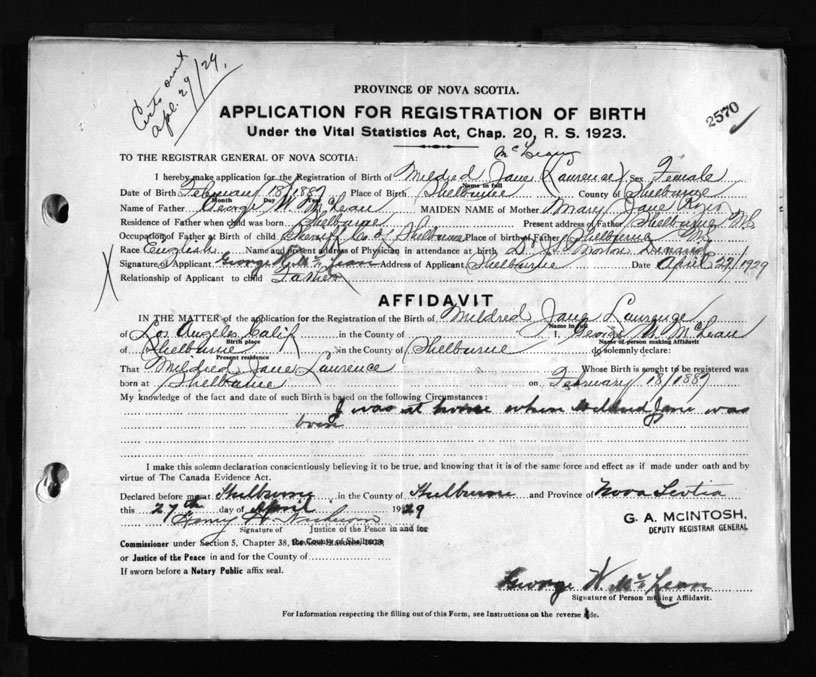 Certs out
Apl. 29/29.
2570
PROVINCE OF NOVA SCOTIA.
APPLICATION FOR REGISTRATION OF BIRTH
Under the Vital Statistics Act, Chap. 20, R. S. 1923.
McLean
TO THE REGISTRAR GENERAL OF NOVA SCOTIA:
I hereby make application for the Registration of Birth of Mildred Jane (Laurence) Sex Female
Name in full
Date of Birth February 18/1887 Place of Birth Shelburne County of Shelburne
Month Day Year
Name of Father George W. McLean MAIDEN NAME of Mother Mary Jane
Residence of Father when child was born Shelburne Present address of Father Shelburne NS
Occupation of Father at Birth of child Sheriff Co of Shelburne Place of birth of Father Shelburne NS
Race English Name and present address of Physician in attendance at birth Morton
Signature of Applicant George W. McLean Address of Applicant Shelburne Date April 27/1929
Relationship of Applicant to child Father
AFFIDAVIT
IN THE MATTER of the application for the Registration of the Birth of Mildred Jane Laurence
Name in full
of Los Angeles Calif in the County of I, George W. McLean
Birth place Name of person making Affidavit
of Shelburne in the County of Shelburne do solemnly declare:
Present residence
That Mildred Jane Laurence Whose Birth is sought to be registered was
born at Shelburne on February 18/1887
My knowledge of the fact and date of such Birth is based on the following Circumstances:
I was at home when Jane was
born
I make this solemn declaration conscientiously believing it to be true, and knowing that it is of the same force and effect as if made under oath and by
virtue of The Canada Evidence Act.
Declared before me at Shelburne in the County of Shelburne and Province of Nova Scotia
this 27th day of April 1929
G. A. McINTOSH,
DEPUTY REGISTRAR GENERAL
Signature of Justice of the Peace in and for
the County of Shelburne
Commissioner under Section 5, Chapter 38, Revised Statutes, 1923
or Justice of the Peace in and for the County of
If sworn before a Notary Public affix seal.
George W. McLean
Signature of Person making Affidavit.
For Information respecting the filling out of this Form, see Instructions on the reverse side.